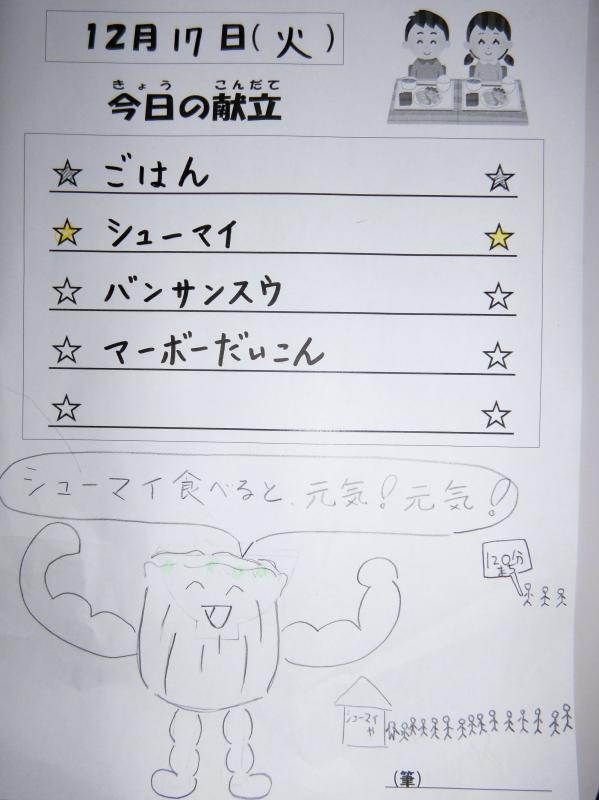 12月17日(火)
きょう こんだて
今日の献立
ごはん
シューマイ
バンサンスウ
マーボーだいこん
シューマイ食べると、元気!元気!
120分
待ち
シューマイ
や
(筆)